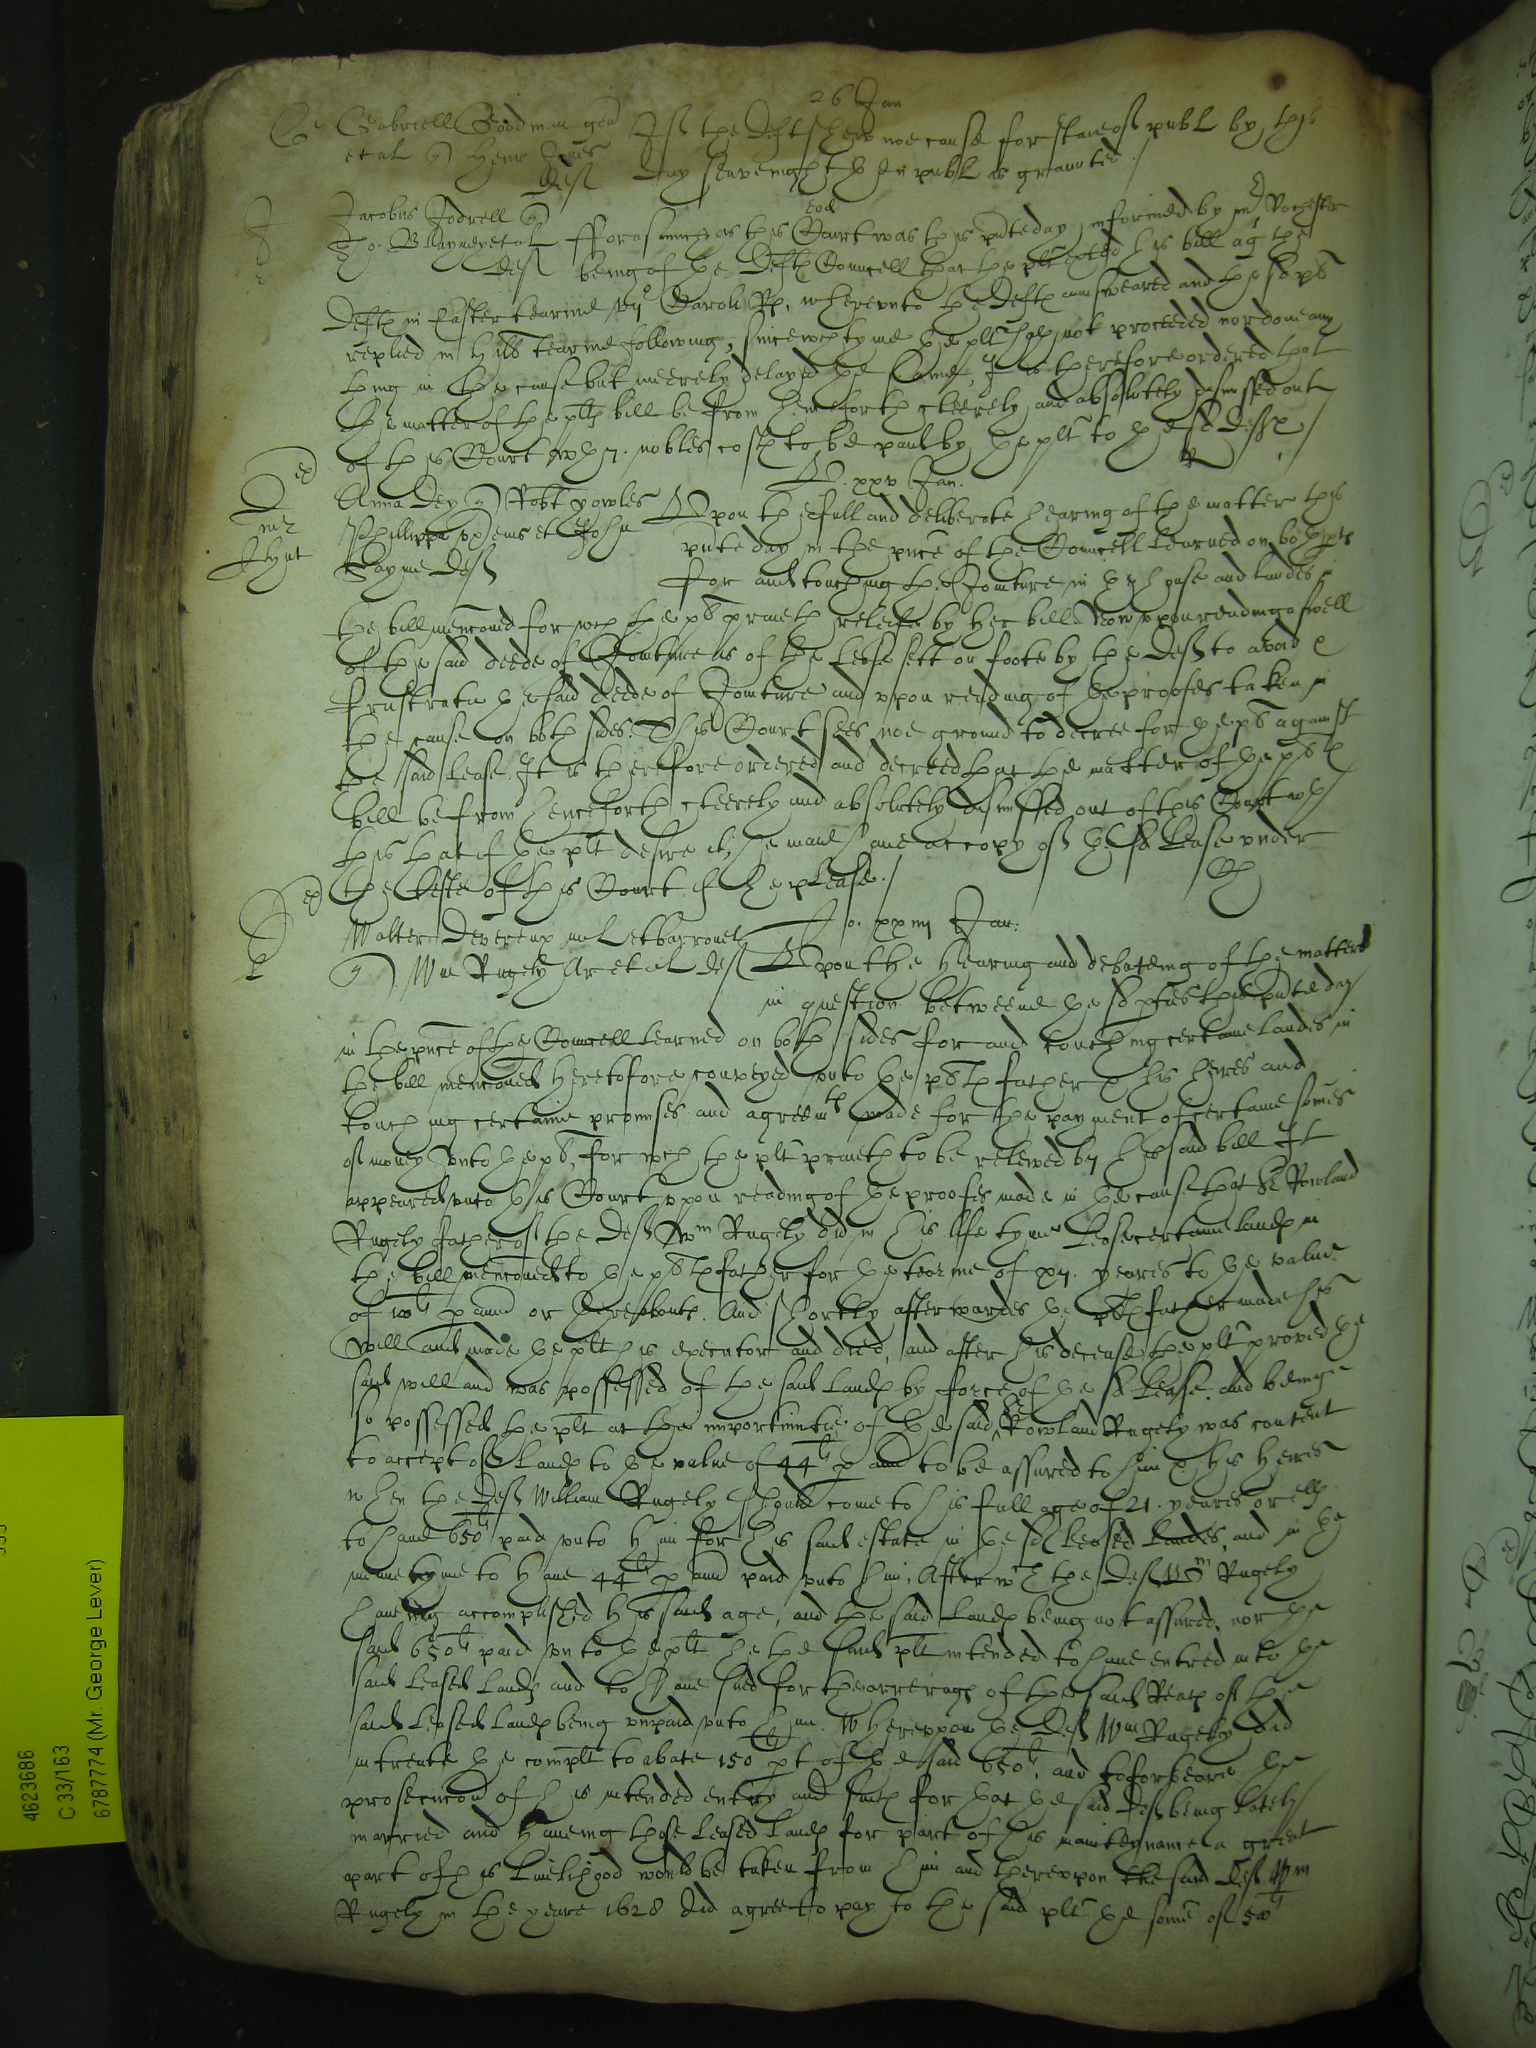 26 Jan
Gabriell Goodman gen If the Deft shew noe cause for staie of publ by this
et al Henr Jones Def day seavenight then publ is graunted
Jacobus Jodrell
Tho: et al Def fforasmuch as this Court was this pnte day informed by mr Rochester
being of the Defts Councell that the plt exhited his bill agt the
Defts in Easter tearme Caroli Rs, wherevnto the Defts answeared and the sd plt
replied in Hill tearme following, since wch tyme the plt hath not proceeded nor done any
thing in the cause but meerely delayed the same, It is therefore ordered that
the matter of the plts bill be from henceforth cleerely and absolutely dismissed out
of this Court wth nobles costs to be paid by the plt to the sd Defts
xxv Jan.
Anna Dey Robt Vowles
Phillippū et John Vpon the full and deliberate hearing of the matter this
Payne Def pnte day in the pnce of the Councell learned on both pts
for and touching the Jointure in the house and landes in
the bill menconed for wch the plt prayeth releife by her bill. Now vpon reading aswell
of the said deede of Jointure as of the Lease sett on foote by the Deft to avoid &
frustrate the said deede of Jointure and vpon reading of the proofes taken in
the cause on both sides. This Court sees noe ground to decree for the plt against
the said lease. It is therefore ordered and decreed that the matter of the plts
bill be from henceforth cleerely and absolutely dismissed out of this Court wth
this that if the plt desire it, she maie haue a coppy of the sd Lease vnder
the seale of this Court if she please.
Jo. xxiii Jan:
Walter Devereux mil et barronet
Wm Rugely Ar et al Def Vpon the hearing and debateing of the matter
in question betweene the sd pties this pnte day
in the pnce of the Councell learned on both sides for and touching certaine landes in
the bill menconed heretofore conveyed vnto the plts father & his heires and
touching certaine promises and agreemts made for the payment of certaine somes
of money vnto the plt, for wch the plt prayeth to be releived by his said bill It
appeared vnto this Court vpon reading of the proofes made in the cause that Sr Rowland
Rugely father of the Def Wm Rugely did in his life tyme lease certaine lands in
the bill menconed to the plts father for the tearme of yeares to the value
of p annū or thereabouts. And shortly afterwardes the plts father made his
will and made the plt his executor and died, and after his decease the plt proved the
said will and was possessed of the said lands by force of the sd lease. and being
so possessed the plt at the importunitie of the said Sr Rowland Rugely was content
to accept of lands to the value of 44li p annū to be assured to him & his heires
when the Def William Rugely should come to his full age of 21. yeares or ells
to haue 650li paid vnto him for his said estate in the sd leased landes, and in the
meane tyme to haue 44li p annū paid vnto him. After wch the Def Wm Rugely
haueing accomplished his said age, and the said lands being not assured, nor the
said 650li paid vnto the plt he the said plt intended to haue entred into the
said leased lands and to haue sued for the arrerages of the said Rents of the
said leased lands being vnpaid vnto him. Wherevpon the Def Wm Rugely did
intreate the complt to abate 150li pt of the said 650li. and to forbeare the
prosecucon of his intended entry and suits for that the said Def being lately
married and haueing those leased lands for part of his mainteynance a great
part of his livelihood would be taken from him and therevpon the said Def Wm
Rugely in the yeare 1628 did agree to pay to the said plt the some of 500li
4623686
C 33/163
6787774 (Mr. George Lever)